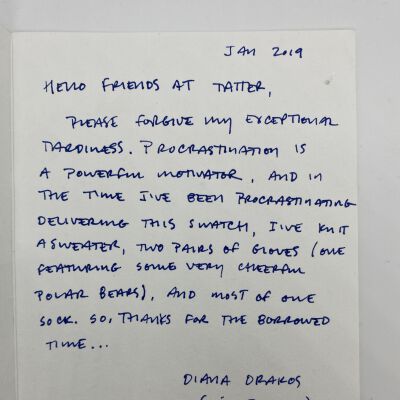 JAN 2019
HELLO FRIENDS AT TATTER,
PLEASE FORGIVE MY EXCEPTIONAL
TARDINESS. PROCRASTINATION IS
A POWERFUL MOTIVATOR, AND IN
THE TIME I'VE BEEN PROCRASTINATING
DELIVERING THIS SWATCH, I'VE KNIT
A SWEATER, TWO PAIRS OF GLOVES (ONE
FEATURING SOME VERY CHEERFUL
POLAR BEARS), AND MOST OF ONE
SOCK. SO, THANKS FOR THE BORROWED
TIME...
DIANA DRAKOS